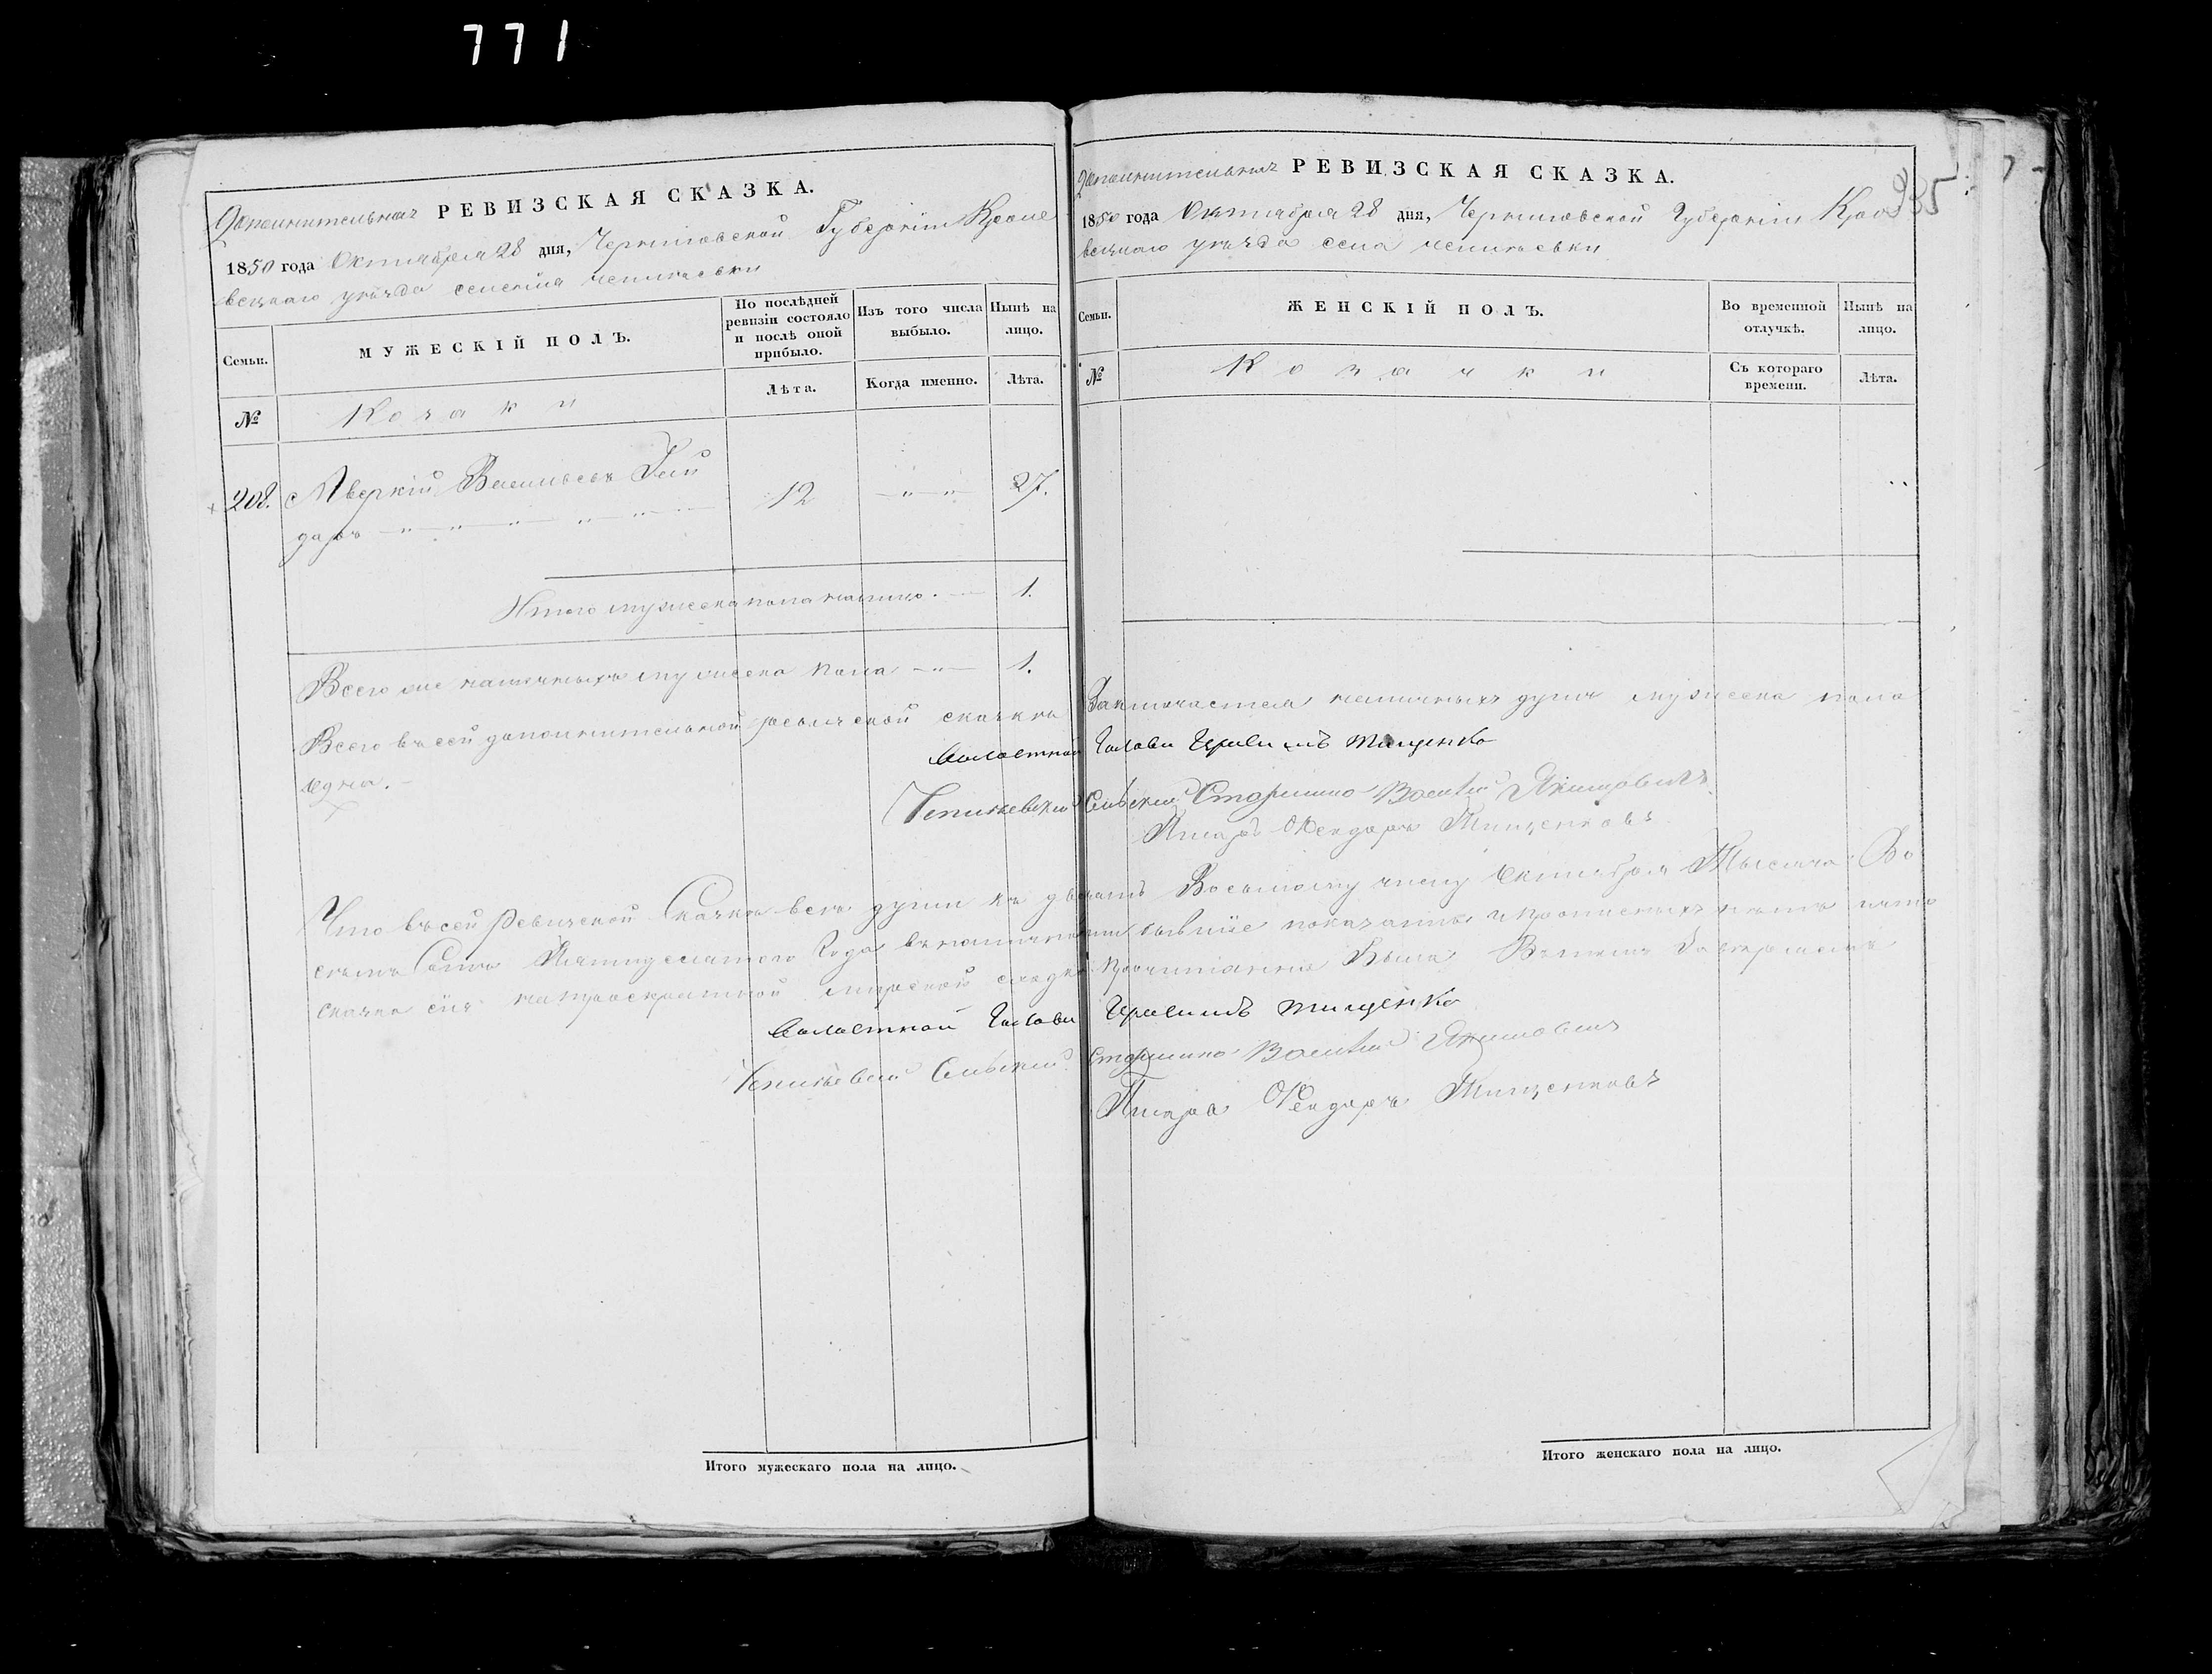 771
Дополнительная РЕВИЗСКАЯ СКАЗКА.
1850 года Октября 28 дня, Черниговской Губерніи Кроле
вецкаго уѣзда
МУЖЕСКІЙ ПОЛЪ.
Семьи.
По послѣдней ревизіи состояло и послѣ оной прибыло.
Изъ того числа выбыло.
Нынѣ на лицо.
№
Козаки
Лѣта.
Когда именно.
Лѣта.
208. Аверкій Васильевъ Гай
даръ
12
27.
Итого мужеска пола налицо. 1.
Всего же наличныхъ мужеска пола 1.
Всего въ сей дополнительной ревизской сказкѣ
одна.
Итого мужескаго пола на лицо.
935
Дополнительная РЕВИЗСКАЯ СКАЗКА.
1850 года Октября 28 дня, Черниговской Губерніи Кроле
вецкаго уѣзда села
Семьи.
ЖЕНСКІЙ ПОЛЪ.
Во временной отлучкѣ.
Нынѣ на лицо.
№
Козачки
Съ котораго времени.
Лѣта.
Заключается наличныхъ душъ мужеска пола
Волостной Голова Тищенко
Сельскій Старшина Василій Якимовичъ
Писарь Тищенковъ
Что въ сей Ревизской Сказкѣ всѣ души къ двадцать Восьмому числу Октября Тысяча Во
семъ Сотъ Пятидесятого Года въ наличности бывшіе показаны
сказка сія мирской сходкѣ прочитанна была
Волостной Голова Тищенко
Сельскій Старшина Василій Якимовичъ
Писарь Тищенковъ
Итого женскаго пола на лицо.